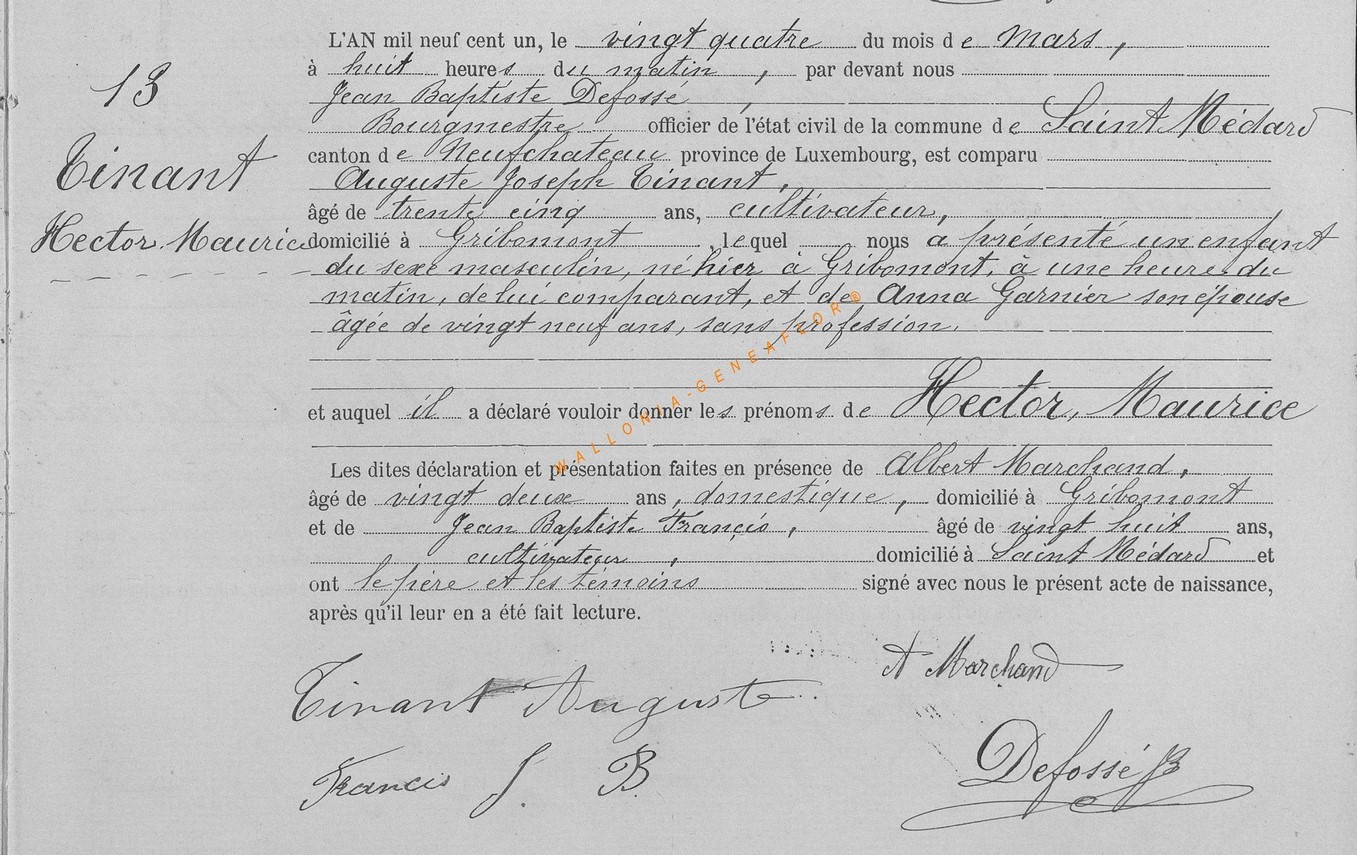 13
Tinant
Hector Maurice
L'AN mil neuf cent un, le vingt quatre du mois de mars,
à huit heures du matin, par devant nous
Jean Baptiste Defossé,
Bourgmestre officier de l'état civil de la commune de Saint Médard
canton de Neufchateau province de Luxembourg, est comparu
Auguste Joseph Tinant,
âgé de trente cinq ans, cultivateur,
domicilié à Gribomont, lequel nous a présenté un enfant
du sexe masculin, né hier à Gribomont, à une heure du
matin, de lui comparant, et de Anna Garnier son épouse
âgée de vingt neuf ans, sans profession.
et auquel il a déclaré vouloir donner les prénoms de Hector, Maurice
Les dites déclaration et présentation faites en présence de Albert Marchand,
âgé de vingt deux ans, domestique, domicilié à Gribomont
et de Jean Baptiste François, âgé de vingt huit ans,
cultivateur, domicilié à Saint Médard et
ont le père et les témoins signé avec nous le présent acte de naissance,
après qu'il leur en a été fait lecture.
A Marchand
Tinant Auguste
Francis J. B.
Defossé JB
WALLONIA-GENEAFLOR®